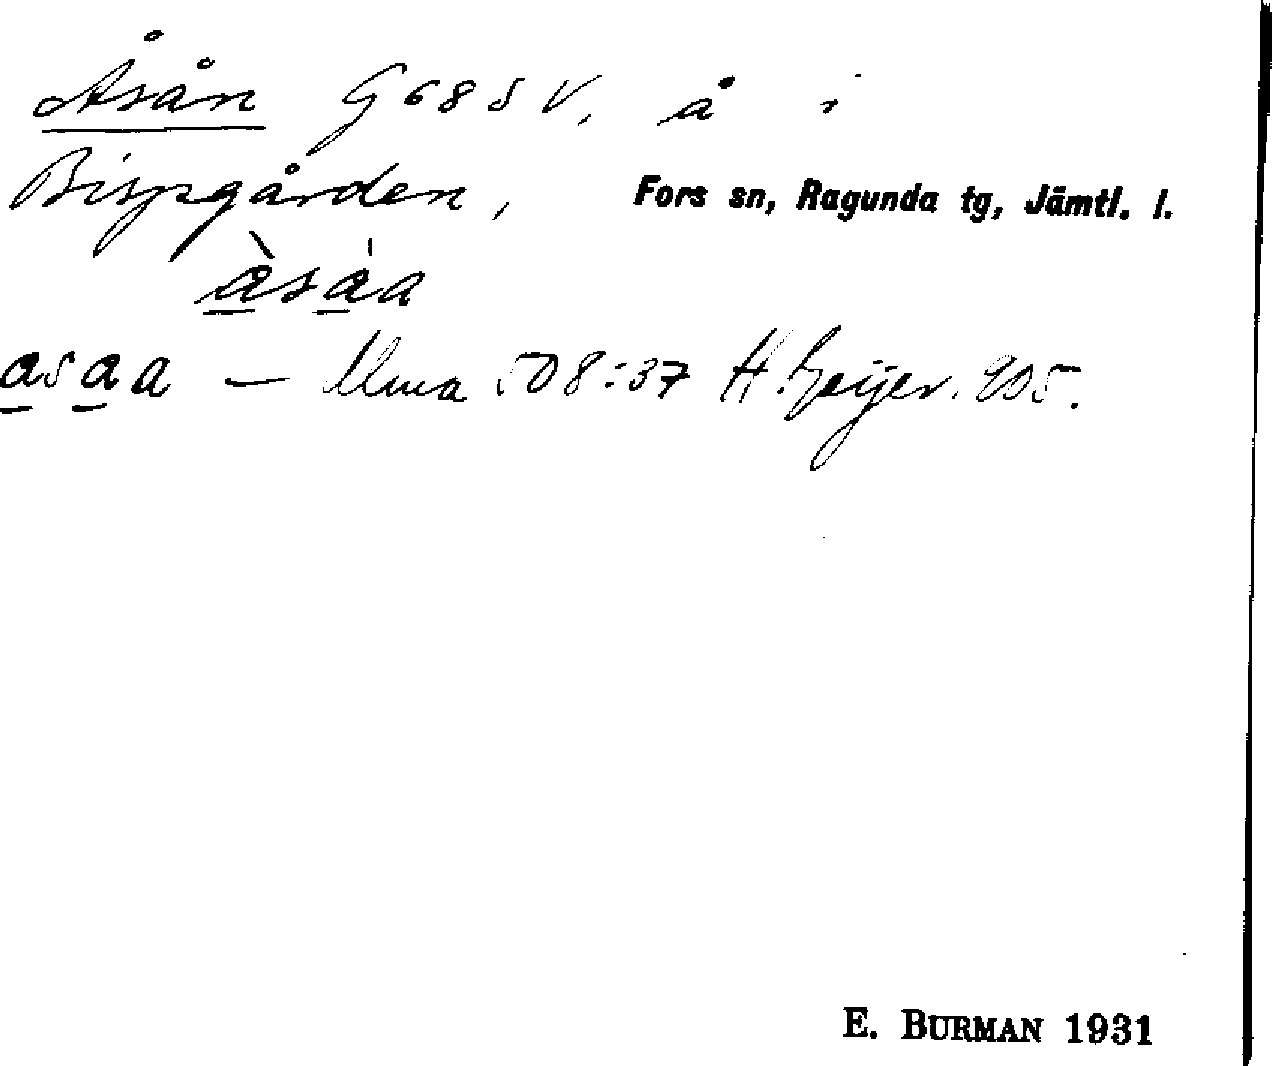 Åsån G 68 S V, å i
Bispgården, Fors sn, Ragunda tg, Jämtl. l.
à̲sa̲̍a
a̲sa̲a — Uma 508:37 H. Geijer. 905.
E. BURMAN 1931